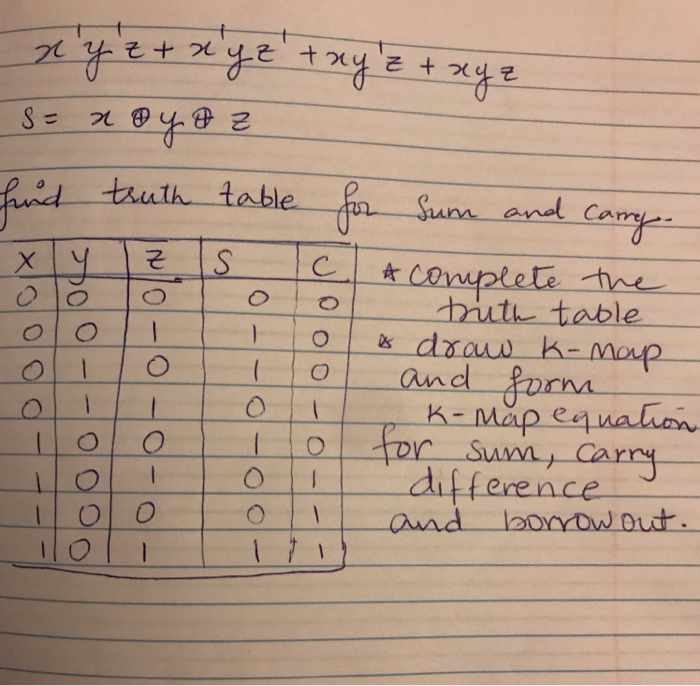 x'y'z + x'yz' + xy'z + xyz
S = x ⊕ y ⊕ z
find truth table for Sum and Carry.
X y z S C
0 0 0 0 0
0 0 1 1 0
0 1 0 1 0
0 1 1 0 1
1 0 0 1 0
1 0 1 0 1
1 0 0 0 1
1 0 1 1 1
* complete the
truth table
* draw K-map
and form
K-Map equation
for sum, Carry
difference
and borrowout.